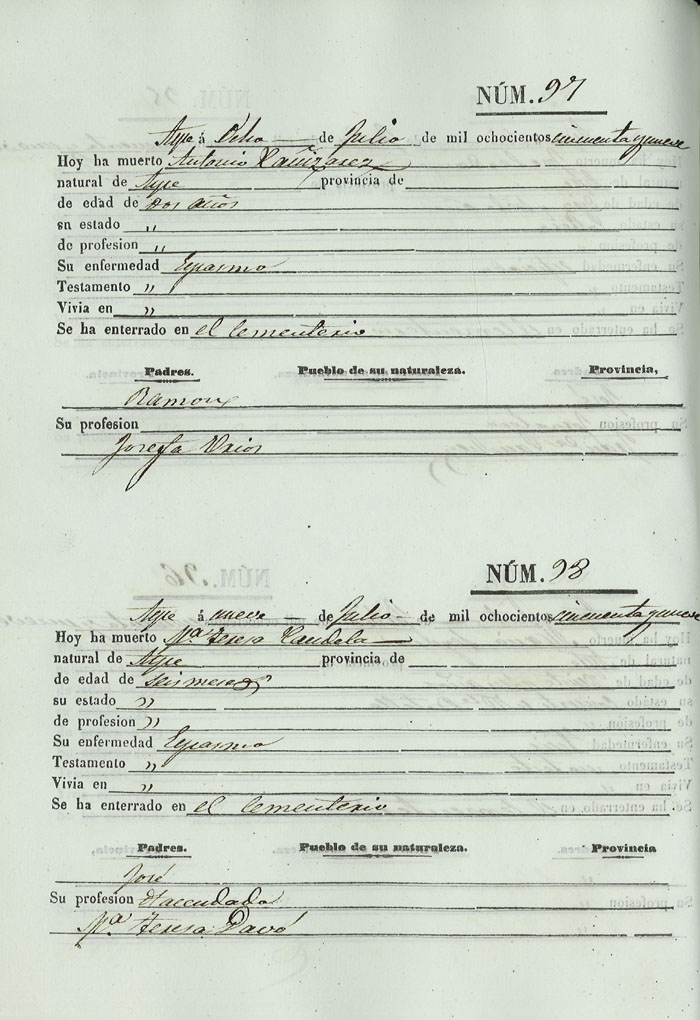 NÚM. 97
Aspe á Ocho de Julio de mil ochocientos cincuenta y nueve
Hoy ha muerto Antonio Cañizares
natural de Aspe provincia de
de edad de dos años
su estado "
de profesion "
Su enfermedad Espasmo
Testamento "
Vivia en "
Se ha enterrado en el Cementerio
Padres. Pueblo de su naturaleza. Provincia,
Ramon
Su profesion
Josefa
NÚM. 98
Aspe á nueve de Julio de mil ochocientos cincuenta y nueve
Hoy ha muerto Mª Teresa Candela
natural de Aspe provincia de
de edad de seis meses
su estado "
de profesion "
Su enfermedad Espasmo
Testamento "
Vivia en "
Se ha enterrado en el Cementerio
Padres. Pueblo de su naturaleza. Provincia
José
Su profesion Hacendado
Mª Teresa Pavó